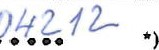 04212 *)